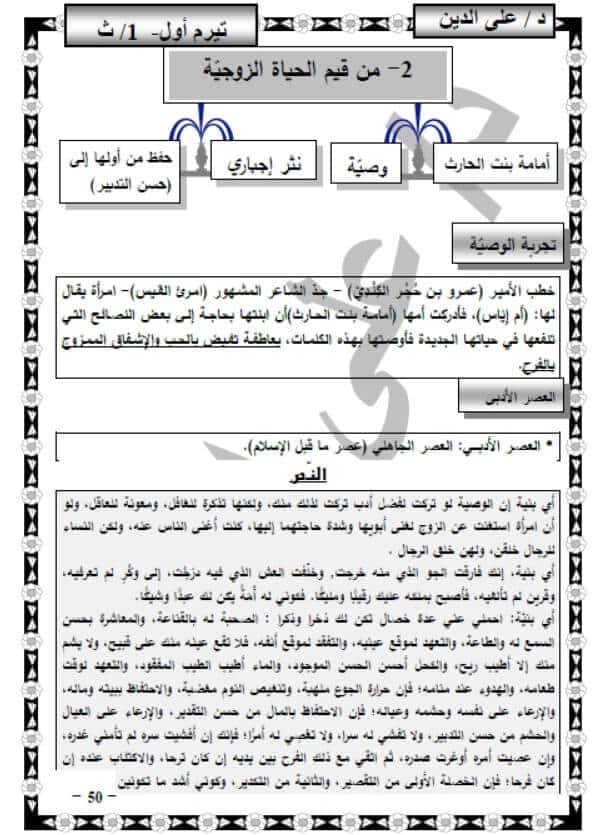 د / على الدين
تيرم أول- 1/ ث
2- من قيم الحياة الزوجيّة
أمامة بنت الحارث
وصيّة
نثر إجباري
حفظ من أولها إلى
(حسن التدبير)
تجربة الوصيّة
خطب الأمير (عمرو بن حُجْر الكِنْدِيّ) – جدّ الشاعر المشهور (امرئ القيس)– امرأة يقال
لها: (أم إياس)، فأدركت أمها (أمامة بنت الحارث)أن ابنتها بحاجة إلى بعض النصائح التي
تنفعها في حياتها الجديدة فأوصتها بهذه الكلمات، بعاطفة تفيض بالحب والإشفاق الممزوج
بالفرح.
العصر الأدبى
* العصر الأدبـي: العصر الجاهلي (عصر ما قبل الإسلام).
النّص
أي بنية إن الوصية لو تركت لفضل أدب تركت لذلك منك، ولكنها تذكرة للغافل، ومعونة للعاقل، ولو
أن امرأة استغنت عن الزوج لغنى أبويها وشدة حاجتهما إليها، كنت أغنى الناس عنه، ولكن النساء
للرجال خلقن، ولهن خلق الرجال .
أي بنية، إنك فارقت الجو الذي منه خرجت، وخلّفت العش الذي فيه درجْت، إلى وكْرٍ لم تعرفيه،
وقرين لم تألفيه، فأصبح بملكه عليك رقيبًا ومليكًا. فكوني له أمَةً يكن لك عبدًا وشيكًا.
أي بنيّة: احملي عني عدة خصال تكن لك ذخرا وذكرا : الصحبة له بالقناعة، والمعاشرة بحسن
السمع له والطاعة، والتعهد لموقع عينيه، والتفقد لموقع أنفه، فلا تقع عينه منك على قبيح، ولا يشم
منك إلا أطيب ريح، والكحل أحسن الحسن الموجود، والماء أطيب الطيب المفقود، والتعهد لوقت
طعامه، والهدوء عند منامه؛ فإن حرارة الجوع ملهبة، وتنغيص النوم مغضبة، والاحتفاظ ببيته وماله،
والإرعاء على نفسه وحشمه وعياله؛ فإن الاحتفاظ بالمال من حسن التقدير، والإرعاء على العيال
والحشم من حسن التدبير، ولا تفشي له سرا، ولا تعصي له أمرًا؛ فإنك إن أفشيت سره لم تأمني غدره،
وإن عصيت أمره أوغرت صدره، ثم اتقي مع ذلك الفرح بين يديه إن كان ترحا، والاكتئاب عنده إن
كان فرحا؛ فإن الخصلة الأولى من التقصير، والثانية من التكدير، وكوني أشد ما تكونين
– 50 –